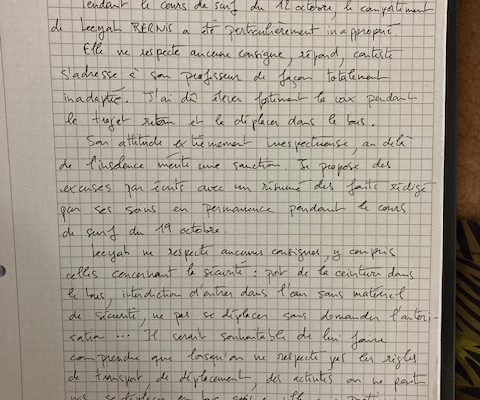 Pendant le cours de surf du 12 octobre, le comportement
de Leeyah BERNIS a été particulièrement inapproprié.
Elle ne respecte aucune consigne, répond, conteste
s'adresse à son professeur de façon totalement
inadaptée. J'ai dû élever fortement la voix pendant
le trajet retour et la déplacer dans le bus.
Son attitude extrêmement irrespectueuse, au delà
de l'insolence mérite une sanction Je propose des
excuses par écrit avec un résumé des faits rédigé
par ses soins en permanence pendant le cours
de surf du 19 octobre.
Leeyah ne respecte aucunes consignes, y compris
celles concernant la sécurité : port de la ceinture dans
le bus, interdiction d'entrer dans l'eau sans matériel
de sécurité, ne pas se déplacer sans demander l'autori-
sation ... Il serait souhaitable de lui faire
comprendre que lorsqu'on ne respecte pas les règles
de transport de déplacement, des activités on ne peut
pas se déplacer en